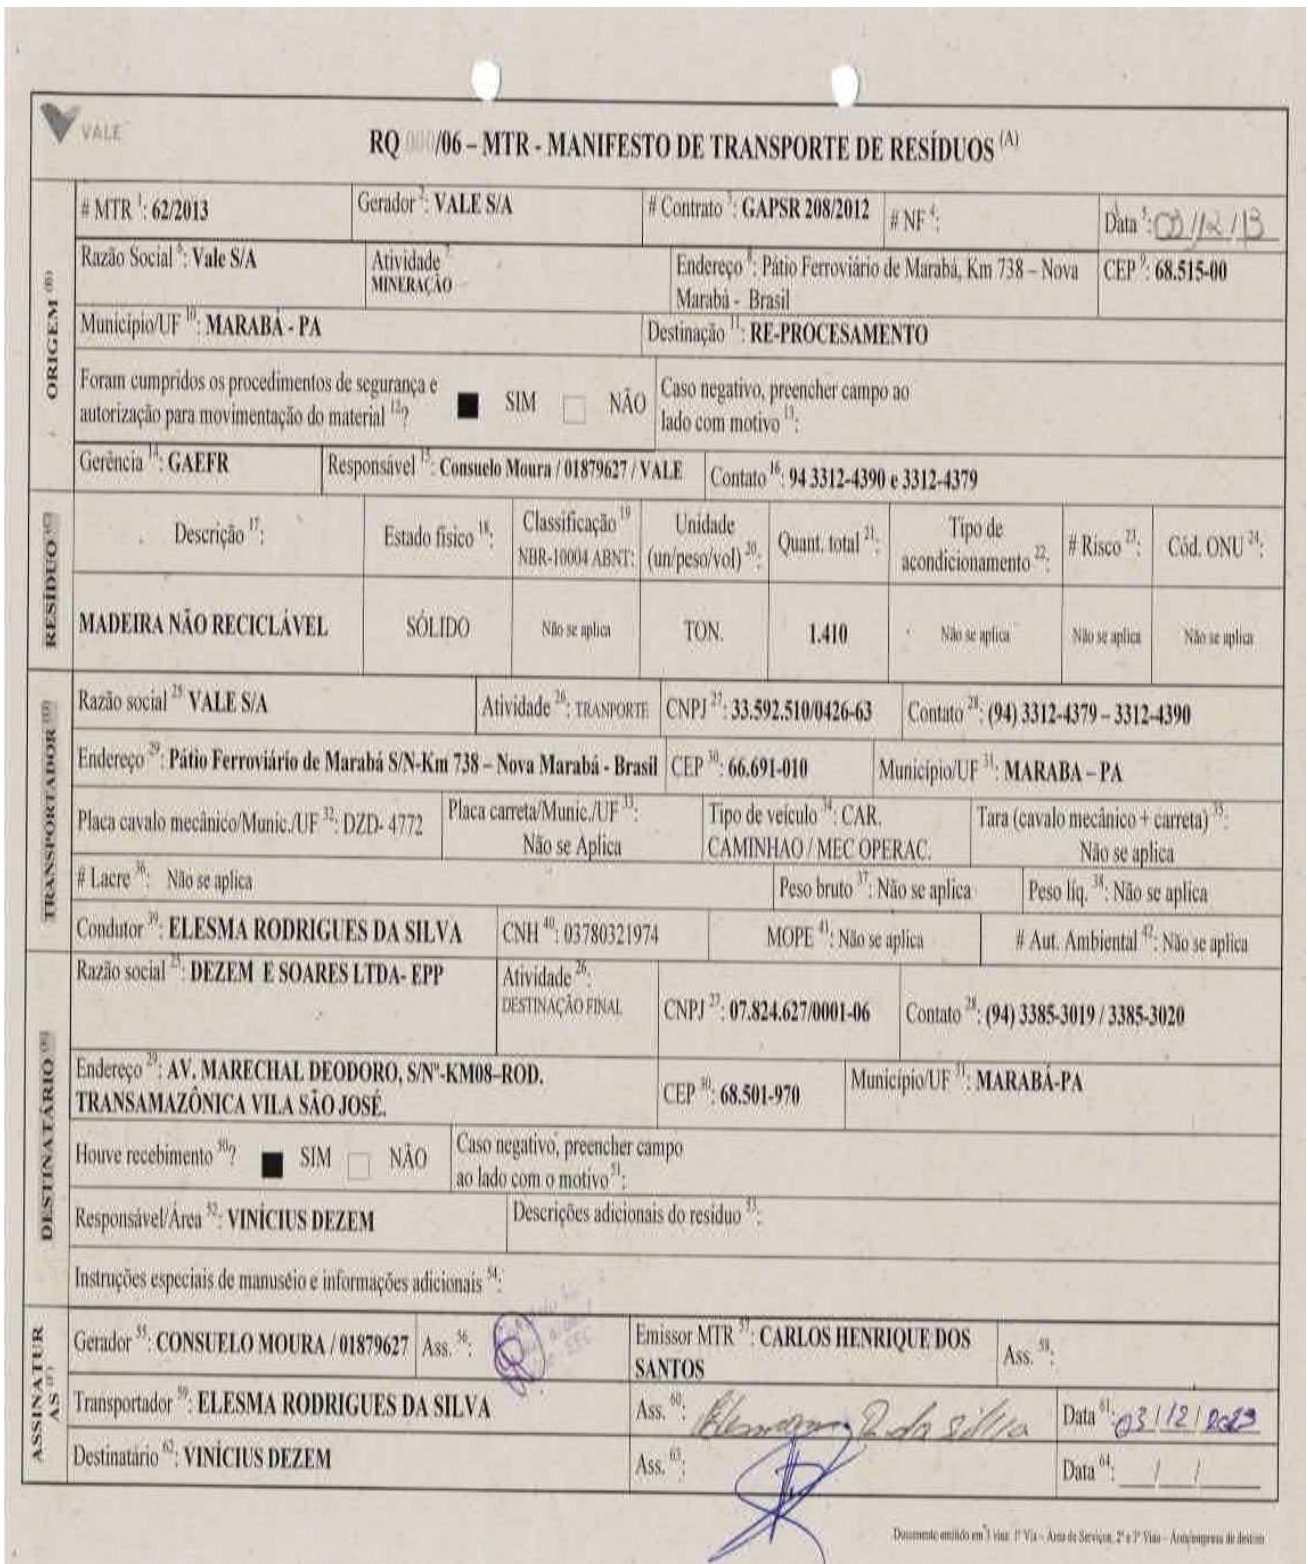 VALE
RQ 000/06 – MTR - MANIFESTO DE TRANSPORTE DE RESÍDUOS (A)
ORIGEM (B)
# MTR 1: 62/2013
Gerador 2: VALE S/A
# Contrato 3: GAPSR 208/2012
# NF 4:
Data 5: 03/12/13
Razão Social 6: Vale S/A
Atividade 7
MINERAÇÃO
Endereço 8: Pátio Ferroviário de Marabá, Km 738 – Nova
Marabá - Brasil
CEP 9: 68.515-00
Município/UF 10: MARABÁ - PA
Destinação 11: RE-PROCESAMENTO
Foram cumpridos os procedimentos de segurança e
autorização para movimentação do material 12?
SIM
NÃO
Caso negativo, preencher campo ao
lado com motivo 13:
Gerência 14: GAEFR
Responsável 15: Consuelo Moura / 01879627 / VALE
Contato 16: 94 3312-4390 e 3312-4379
RESÍDUO (C)
Descrição 17:
Estado físico 18:
Classificação 19
NBR-10004 ABNT:
Unidade
(un/peso/vol) 20:
Quant. total 21:
Tipo de
acondicionamento 22:
# Risco 23:
Cód. ONU 24:
MADEIRA NÃO RECICLÁVEL
SÓLIDO
Não se aplica
TON.
1.410
Não se aplica
Não se aplica
Não se aplica
TRANSPORTADOR (D)
Razão social 25 VALE S/A
Atividade 26: TRANPORTE
CNPJ 27: 33.592.510/0426-63
Contato 28: (94) 3312-4379 – 3312-4390
Endereço 29: Pátio Ferroviário de Marabá S/N-Km 738 – Nova Marabá - Brasil
CEP 30: 66.691-010
Município/UF 31: MARABA – PA
Placa cavalo mecânico/Munic./UF 32: DZD- 4772
Placa carreta/Munic./UF 33:
Não se Aplica
Tipo de veículo 34: CAR.
CAMINHAO / MEC OPERAC.
Tara (cavalo mecânico + carreta) 35:
Não se aplica
# Lacre 36: Não se aplica
Peso bruto 37: Não se aplica
Peso líq. 38: Não se aplica
Condutor 39: ELESMA RODRIGUES DA SILVA
CNH 40: 03780321974
MOPE 41: Não se aplica
# Aut. Ambiental 42: Não se aplica
DESTINATÁRIO (E)
Razão social 25: DEZEM E SOARES LTDA- EPP
Atividade 26:
DESTINAÇÃO FINAL
CNPJ 27: 07.824.627/0001-06
Contato 28: (94) 3385-3019 / 3385-3020
Endereço 29: AV. MARECHAL DEODORO, S/Nº-KM08–ROD.
TRANSAMAZÔNICA VILA SÃO JOSÉ.
CEP 30: 68.501-970
Município/UF 31: MARABÁ-PA
Houve recebimento 50?
SIM
NÃO
Caso negativo, preencher campo
ao lado com o motivo 51:
Responsável/Área 52: VINÍCIUS DEZEM
Descrições adicionais do resíduo 53:
Instruções especiais de manuseio e informações adicionais 54:
ASSINATUR
AS (F)
Gerador 55: CONSUELO MOURA / 01879627
Ass. 56:
Emissor MTR 57: CARLOS HENRIQUE DOS
SANTOS
Ass. 58:
Transportador 59: ELESMA RODRIGUES DA SILVA
Ass. 60: R da silva
Data 61: 03/12/2013
Destinatário 62: VINÍCIUS DEZEM
Ass. 63:
Data 64: / /
Documento emitido em 3 vias: 1ª Via – Área de Serviços, 2ª e 3ª Vias – Área/empresa de destino